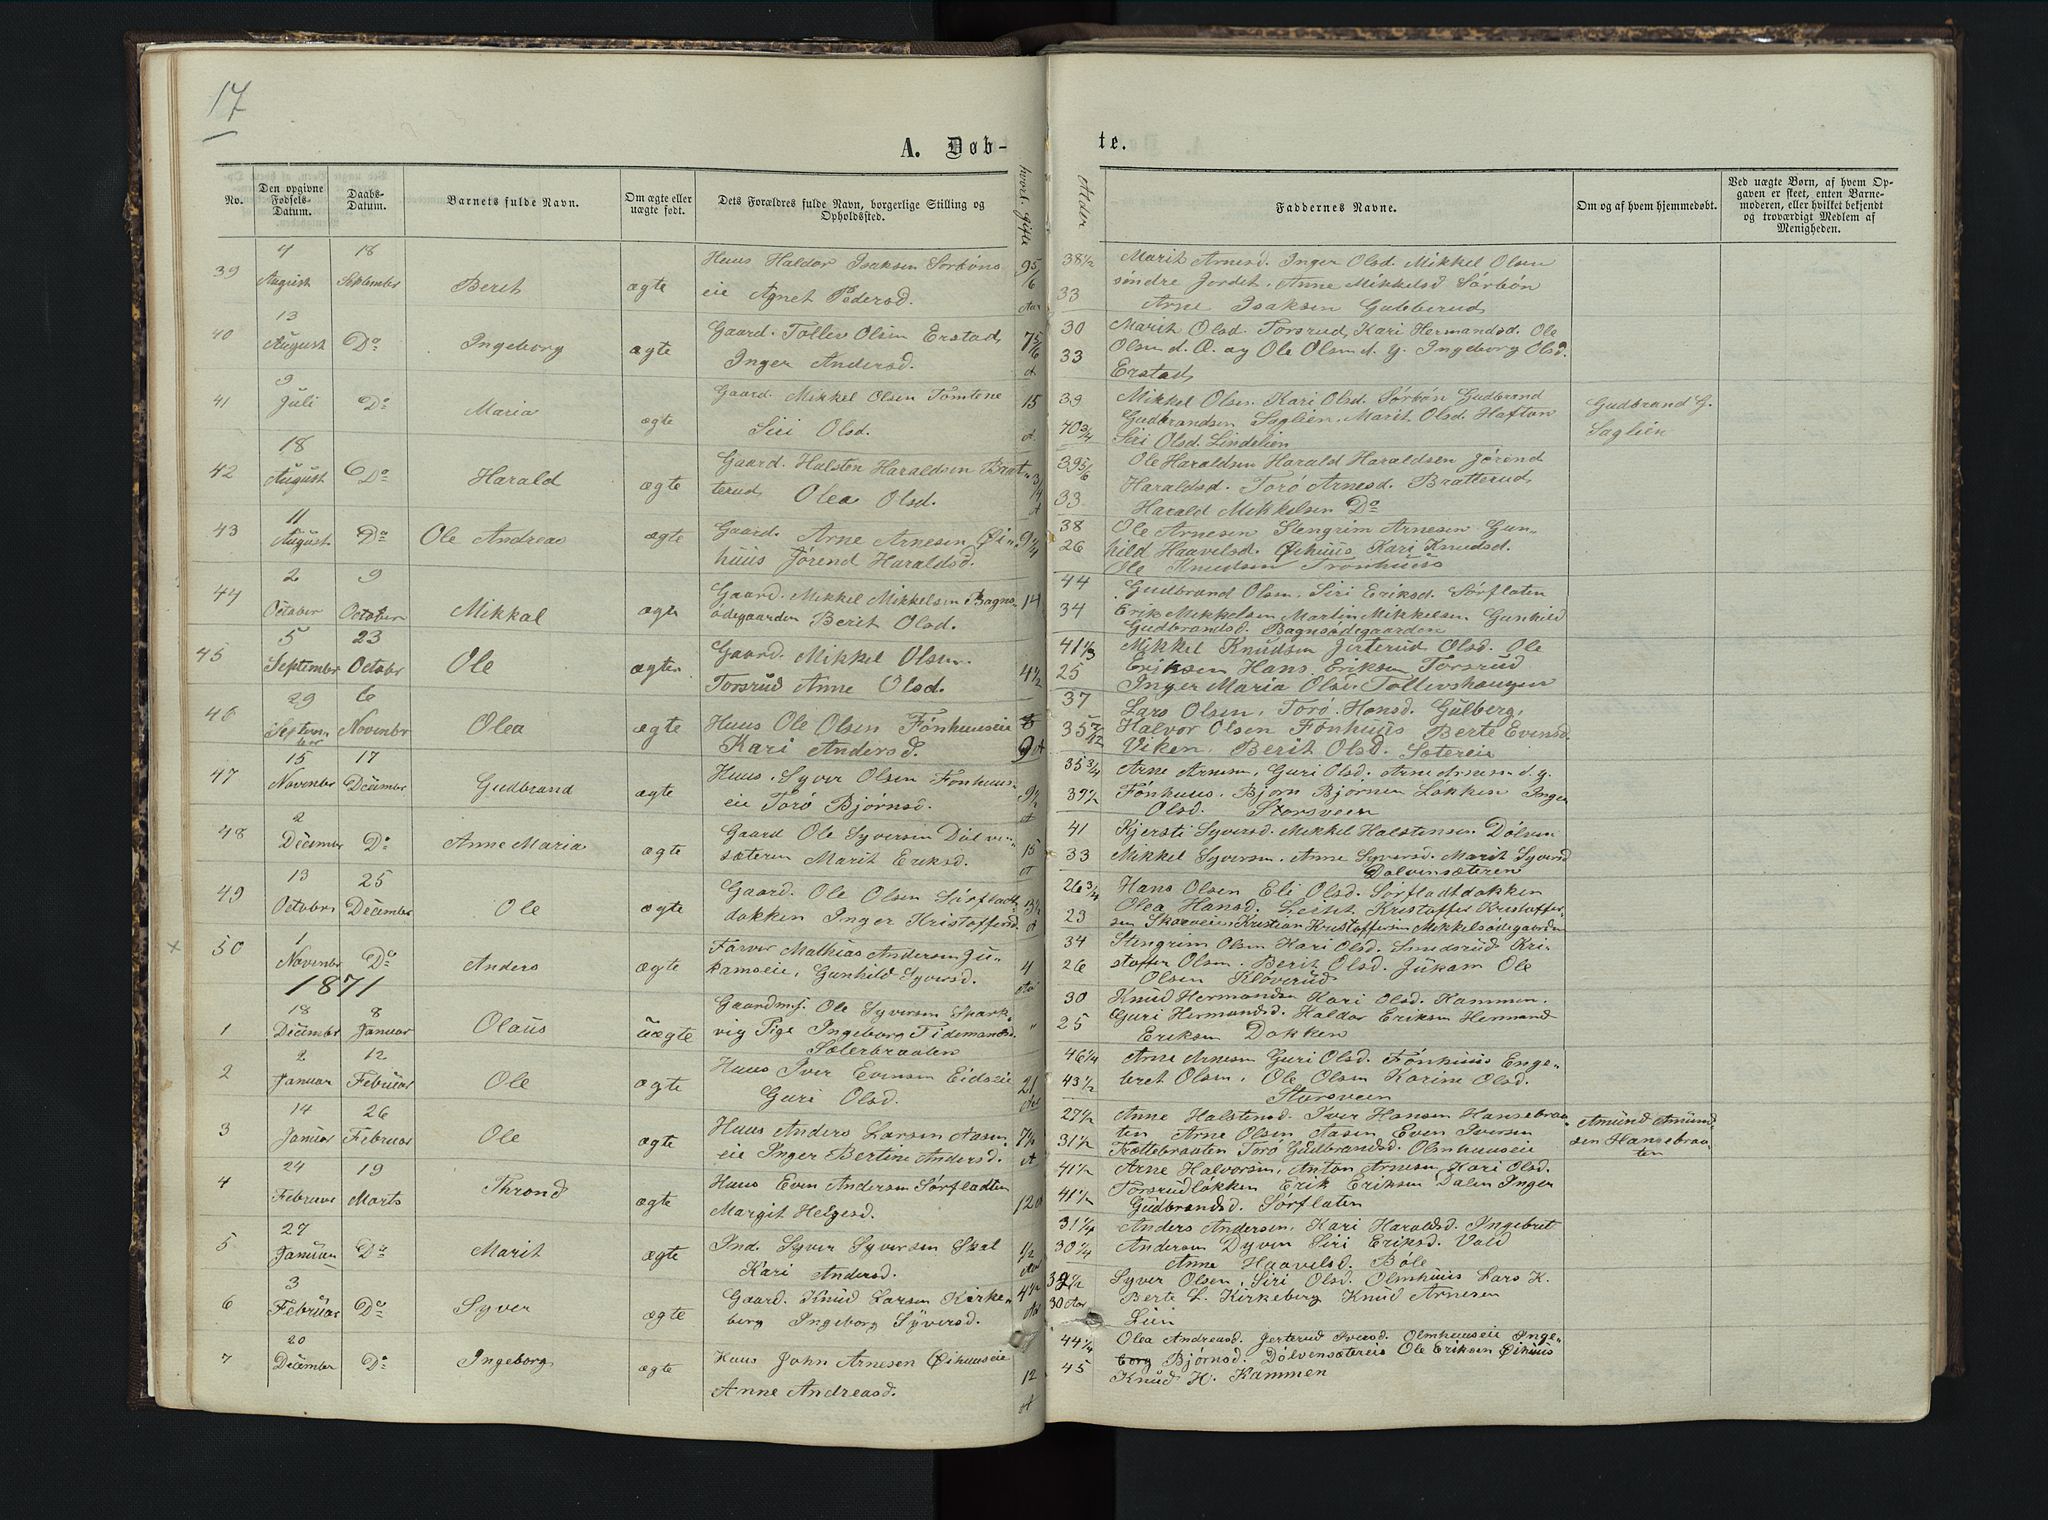 17
A. Døb-
te.
No.
Den opgivne Fødsels-Datum.
Daabs-Datum.
Barnets fulde Navn.
Om ægte eller uægte født.
Dets Forældres fulde Navn, borgerlige Stilling og Opholdssted.
hvorl. gifte
Alder
Faddernes Navne.
Om og af hvem hjemmedøbt.
Ved uægte Børn, af hvem Opgaven er skeet, enten Barnemoderen, eller hvilket bekjendt og troværdigt Medlem af Menigheden.
39 4 August 18 September Berit ægte
Huus Haldor Isaksen Sørbøns
eie Agnet Pedersd. 9 5/6 Aar
38 1/2 Marit Arnesd. Inger Olsd. Mikkel Olsen
søndre Jordet. Anne Mikkelsd Sørbøn
33 Arne Isaksen Gubberud
40 13 August Do Ingeborg ægte
Gaard. Tollev Olsen Erstad
Inger Andersd. 7 5/6 A
30 Marit Olsd. Torsrud, Kari Hermandsd. Ole
33 Olsen d. Æ. og Ole Olsen d. y. Ingeborg Olsd.
Erstad
41 9 Juli Do Maria ægte
Gaard. Mikkel Olsen Tomtene
Siri Olsd. 15 A
39 Mikkel Olsen. Kari Olsd. Sørbøn Gudbrand
Gudbrandsen Saglien. Marit Olsd. Haftun
40 3/4 Siri Olsd. Lindelien
Gudbrand G.
Saglien
42 18 August Do Harald ægte
Gaard. Halsten Haraldsen Brat-
terud, Olea Olsd. 3/4 A
39 5/6 Ole Haraldsen Harald Haraldsen Jørend
Haraldsd. Torø Arnesd. Bratterud
33 Harald Mikkelsen Do
43 11 August Do Ole Andreas ægte
Gaard. Arne Arnesen Øi-
huus Jørend Haraldsd.
38 Ole Arnesen Stengrim Arnesen Gun-
26 hild Haavelsd. Øihuus Kari Knudsd.
Ole Knudsen Tronhuus
44 2 October 9 October Mikkal ægte
Gaard. Mikkel Mikkelsen Bagns-
ødegaarden Berit Olsd. 14
44 Gudbrand Olsen, Siri Eriksd. Sørflaten
34 Erik Mikkelsen Martin Mikkelsen Gunhild
Gudbrandsd. Bagnsødegaarden
45 5 September 23 October Ole ægte
Gaard. Mikkel Olsen
Torsrud Anne Olsd. 4 1/2
41 1/3 Mikkel Knudsen Jerterud Olsd. Ole
25 Eriksen Hans Eriksen Torsrud
Inger Maria Olsd. Tollevshaugen
46 29 September 6 November Olea ægte
Huus Ole Olsen Fønhuuseie
Kari Andersd. 9 A
37 Lars Olsen, Torø Hansd. Gulberg,
35 7/12 Halvor Olsen Fønhuus Berte Evensd.
Viken. Berit Olsd. Sætereie
47 15 November 17 December Gudbrand ægte
Huus. Syver Olsen Fønhuus-
eie Torø Bjørnsd. 9 1/2 A
35 3/4 Arne Arnesen, Guri Olsd. Arne Arnesen d. y.
39 1/2 Fønhuus. Bjørn Bjørnsen Løkken Inger
Olsd. Storsveen
48 2 December Do Anne Maria ægte
Gaard Ole Syversen Dølven-
sæteren Marit Eriksd. 15 A
41 Kjersti Syversd. Mikkel Halstensen Dølven
33 Mikkel Syversen. Anne Syversd. Marit Syversd
Dølvensæteren
49 13 October 25 December Ole ægte
Gaard. Ole Olsen Sørfladt-
dokken Inger Kristoffersd. 3 1/2 A
26 3/4 Hans Olsen Eli Olsd. Sørfladtdokken
Olea Hansd. Leite. Kristoffer Kristoffer-
23 sen Skoreeie Kristian Kristoffersen Mikkelsødegaarden
x 50 1 November Do Anders ægte
Farver Mathias Andersen Ju-
kamseie, Gunhild Syversd. 4 Aar
34 Stengrim Olsen Kari Olsd. Smedsrud Kri-
26 stoffer Olsen. Berit Olsd. Jukam Ole
Olsen Kløverud
1871
1 18 December 8 Januar Olaus uægte
Gaardmsj. Ole Syversen Spark-
vig Pige Ingeborg Tidemandsd.
Sæterbraaten "
30 Knud Hermandsen Kari Olsd. Kammen.
25 Guri Hermandsd. Haldor Eriksen Hermand
Eriksen Dokken
2 2 Januar 12 Februar Ole ægte
Huus Iver Evensen Eidseie
Guri Olsd. 21 Aar
46 1/4 Arne Arnesen Guri Olsd. Fønhuus Enge-
43 1/2 bret Olsen, Ole Olsen Karine Olsd.
Storsveen
3 14 Januar 26 Februar Ole ægte
Huus Anders Larsen Aasen
eie Inger Bertine Andersd. A
27 1/2 Anne Halstensd. Iver Hansen Hansebraa-
31 1/2 ten Arne Olsen Aasen Even Iversen
Trættebraaten Torø Gudbrandsd. Olmhuuseie
Amund Amund-
sen Hansebraa-
ten
4 24 Februar 19 Marts Thrond ægte
Huus Even Andersen Sørfladten
Margit Helgesd. 12 A
41 1/2 Arne Halvorsen, Anton Arnesen Kari Olsd.
41 1/2 Torsrudløkken Erik Eriksen Dalen Inger
Gudbrandsd. Sørflaten
5 27 Januar Do Marit ægte
Ind. Syver Syversen Skal
Kari Andersd. 1/2 Aar
31 1/4 Anders Andersen, Kari Haraldsd. Ingebret
30 1/4 Andersen Dyven Siri Eriksd. Vold
Anne Haavelsd. Bøle
6 3 Februar Do Syver ægte
Gaard. Knud Larsen Kirke-
berg Ingeborg Syversd. 4 1/2 Aar
Syver Olsen, Siri Olsd. Olmhuus Lars K.
30 Aar Berte L. Kirkeberg Knud Arnesen
Lien
7 20 December Do Ingeborg ægte
Huus John Arnesen Øihuuseie
Anne Andreasd. 12 A
44 1/4 Olea Andreasd. Jerterud Iversd. Olmhuuseie Inge-
borg Bjørnsd. Dølvensætereie Ole Eriksen Øihuus
45 Knud H. Kammen